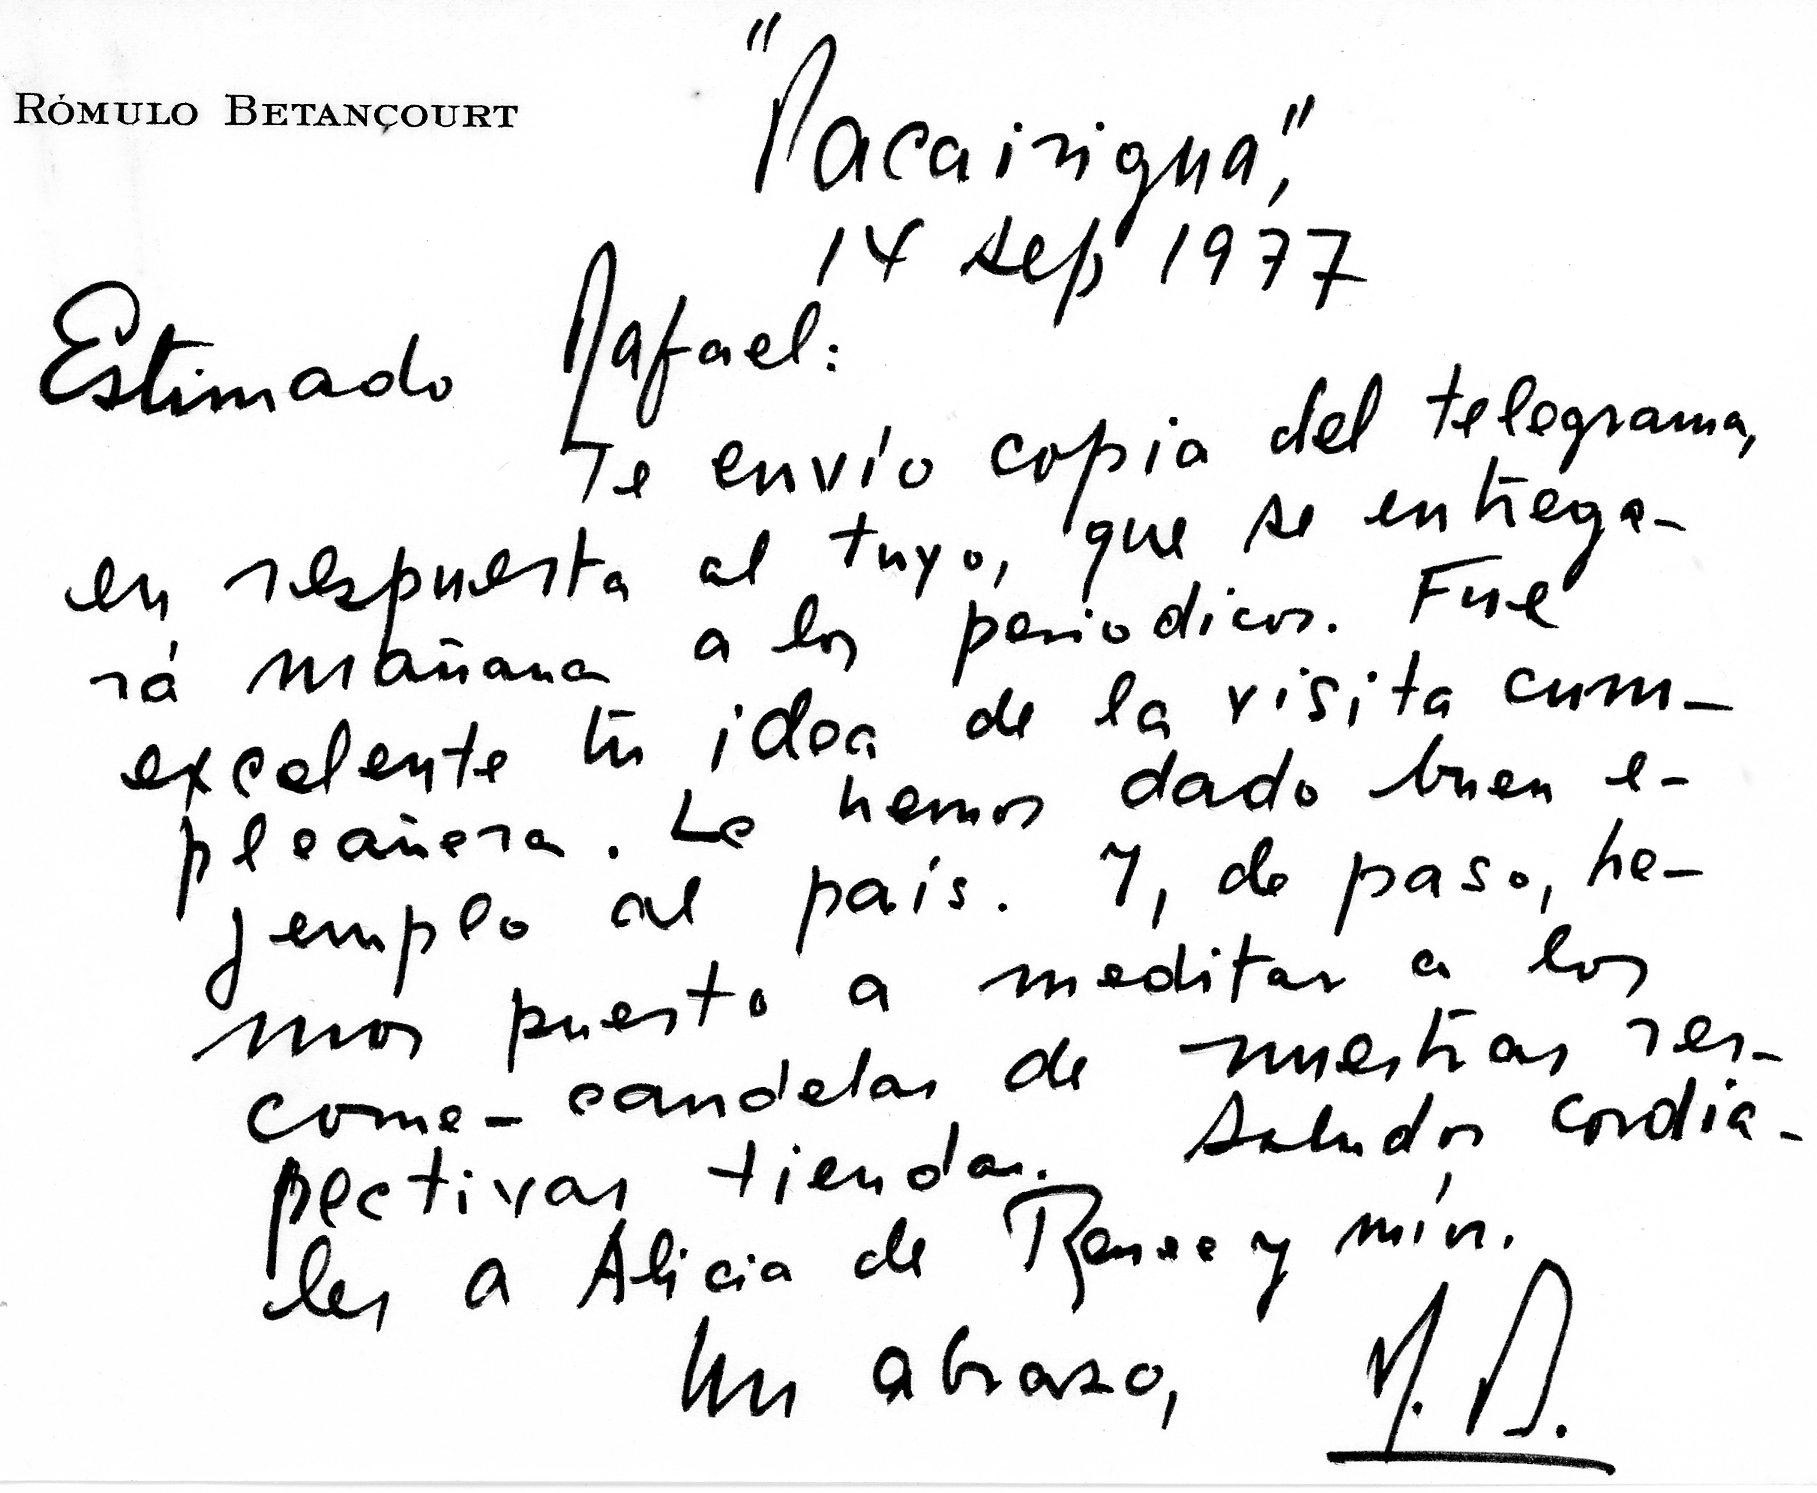 RÓMULO BETANCOURT
"Pacairigua,"
14 sep 1977
Estimado Rafael:
Te envío copia del telegrama,
en respuesta al tuyo, que se entrega-
rá mañana a los periodicos. Fue
excelente tu idea de la visita cum-
pleañera. Le hemos dado buen e-
jemplo al país. Y, de paso, he-
mos puesto a meditar a los
come-candelas de nuestras res-
pectivas tiendas. Saludos cordia-
les a Alicia de Renee y míos.
Un abrazo, R. B.